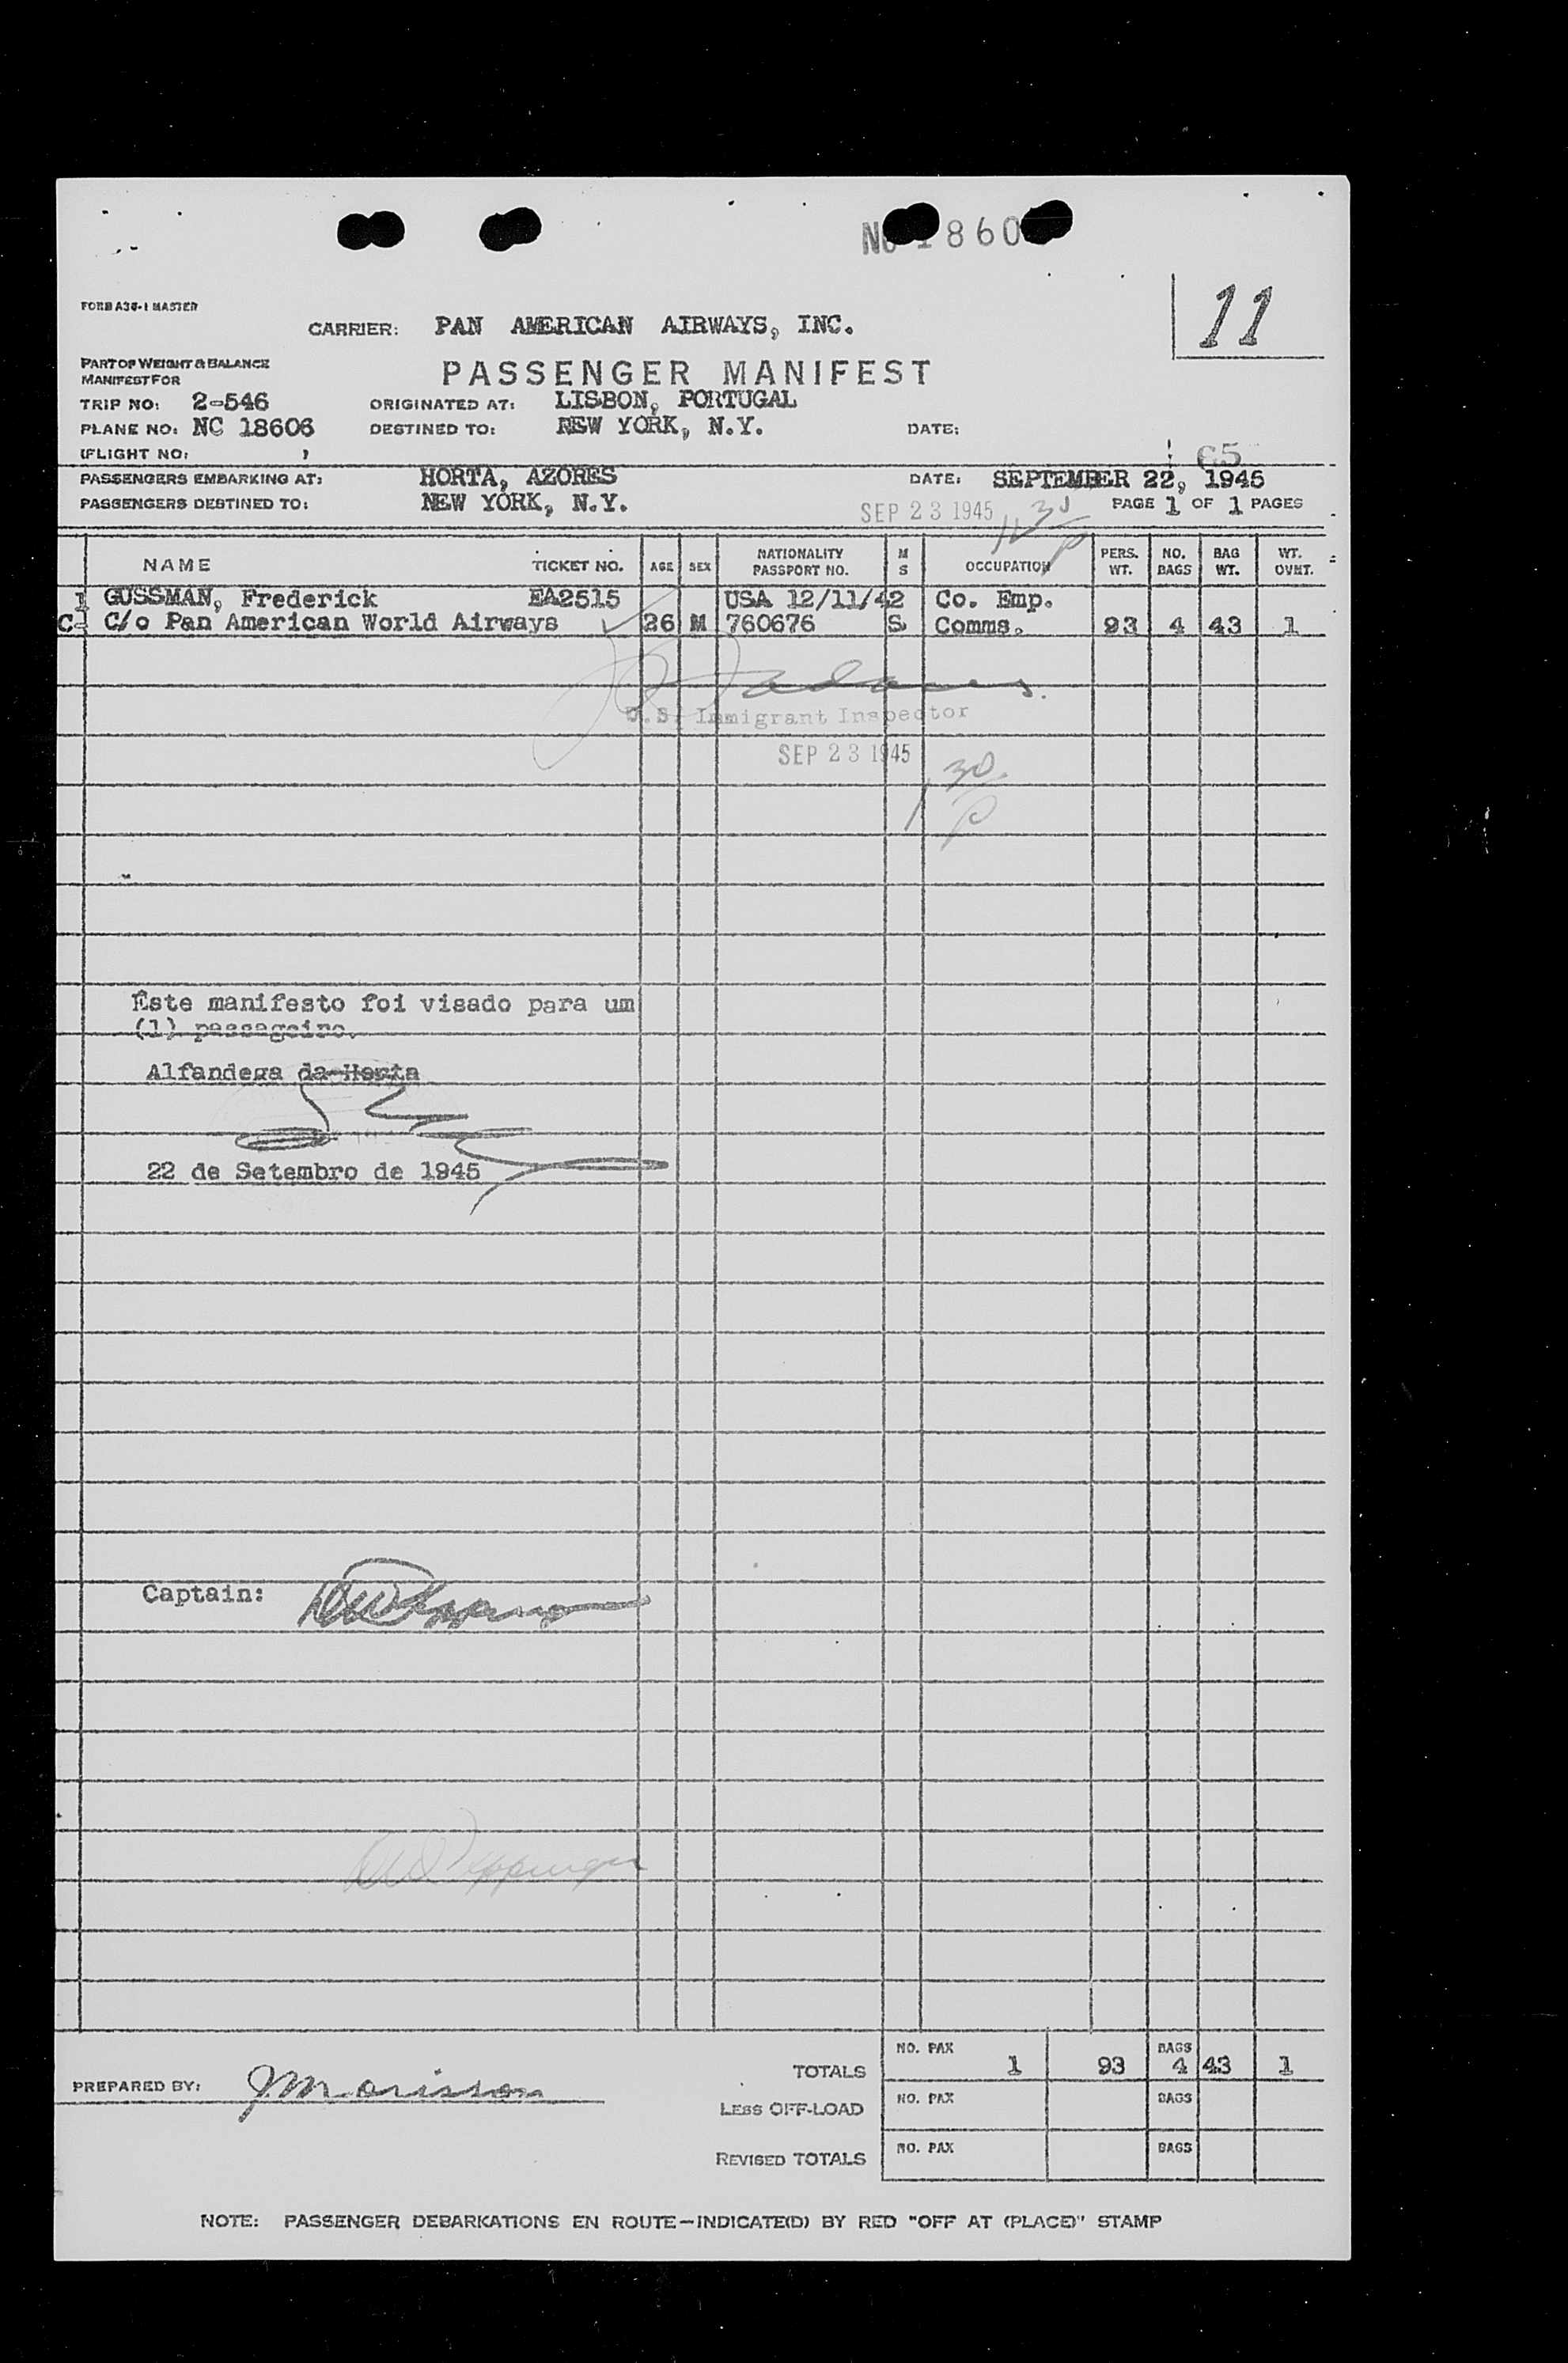 860
11
FORM A38-1 MASTER
CARRIER: PAN AMERICAN AIRWAYS, INC.
PART OF WEIGHT & BALANCE
MANIFEST FOR
PASSENGER MANIFEST
TRIP NO: 2-546 ORIGINATED AT: LISBON, PORTUGAL
PLANE NO: NC 18606 DESTINED TO: NEW YORK, N.Y. DATE:
(FLIGHT NO: )
PASSENGERS EMBARKING AT: HORTA, AZORES DATE: SEPTEMBER 22, 1945
PASSENGERS DESTINED TO: NEW YORK, N.Y. SEP 23 1945 PAGE 1 OF 1 PAGES
NAME TICKET NO. AGE SEX NATIONALITY PASSPORT NO. M S OCCUPATION PERS. WT. NO. BAGS BAG WT. WT. OVHT.
1 GUSSMAN, Frederick EA2515 USA 12/11/42 Co. Emp.
C- C/o Pan American World Airways 26 M 760676 S Comms. 93 4 43 1
U.S. Immigrant Inspector
SEP 23 1945
1 30
P
Este manifesto foi visado para um
(1) passageiro.
Alfandega da Horta
22 de Setembro de 1945
Captain:
TOTALS NO. PAX 1 93 BAGS 4 43 1
PREPARED BY: JMorisson
LESS OFF-LOAD NO. PAX BAGS
REVISED TOTALS NO. PAX BAGS
NOTE: PASSENGER DEBARKATIONS EN ROUTE—INDICATE(D) BY RED "OFF AT (PLACE)" STAMP